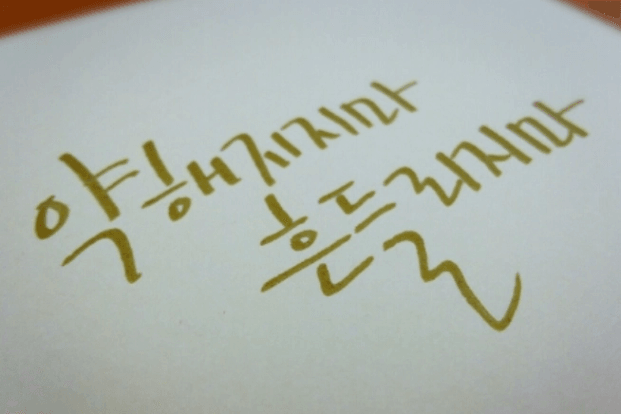 약해지지마
흔들리지마